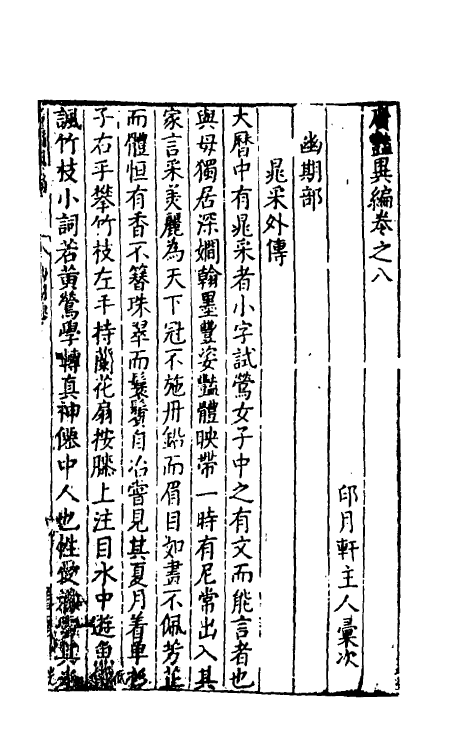 廣艷異編卷之八
印月軒主人彙次
幽期部
晁采外傳
大曆中有晁采者小字試鶯女子中之有文而能言者也
與母獨居深嫺翰墨豐姿豔體映帶一時有尼常出入其
家言采美麗為天下冠不施丹鉛而眉目如畫不佩芳芷
而體恒有香不簪珠翠而鬟鬢自冶嘗見其夏月着單衫
子右手攀竹枝左手持蘭花扇按膝上注目水中遊魚低
諷竹枝小詞若黃鶯學囀真神僊中人也性愛